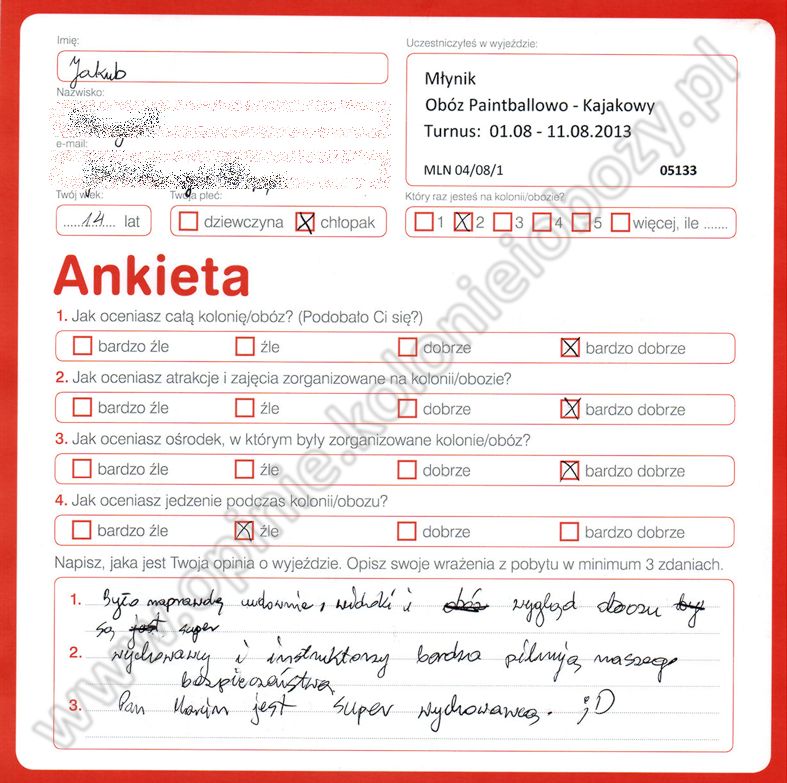 Imię:
Jakub
Nazwisko:
e-mail:
Twój wiek:
14 lat
Twoja płeć:
dziewczyna chłopak
Uczestniczyłeś w wyjeździe:
Młynik
Obóz Paintballowo - Kajakowy
Turnus: 01.08 - 11.08.2013
MLN 04/08/1 05133
Który raz jesteś na kolonii/obozie?
1 2 3 4 5 więcej, ile .......
Ankieta
1. Jak oceniasz całą kolonię/obóz? (Podobało Ci się?)
bardzo źle źle dobrze bardzo dobrze
2. Jak oceniasz atrakcje i zajęcia zorganizowane na kolonii/obozie?
bardzo źle źle dobrze bardzo dobrze
3. Jak oceniasz ośrodek, w którym były zorganizowane kolonie/obóz?
bardzo źle źle dobrze bardzo dobrze
4. Jak oceniasz jedzenie podczas kolonii/obozu?
bardzo źle źle dobrze bardzo dobrze
Napisz, jaka jest Twoja opinia o wyjeździe. Opisz swoje wrażenia z pobytu w minimum 3 zdaniach.
1. Było naprawdę cudownie, widoki i obóz wygląd obozu był
są jest super
2. wychowawcy i instruktorzy bardzo pilnują naszego
bezpieczeństwa
3. Pan Marcin jest super wychowawcą. ;D
www.opinie.kolonieiobozy.pl